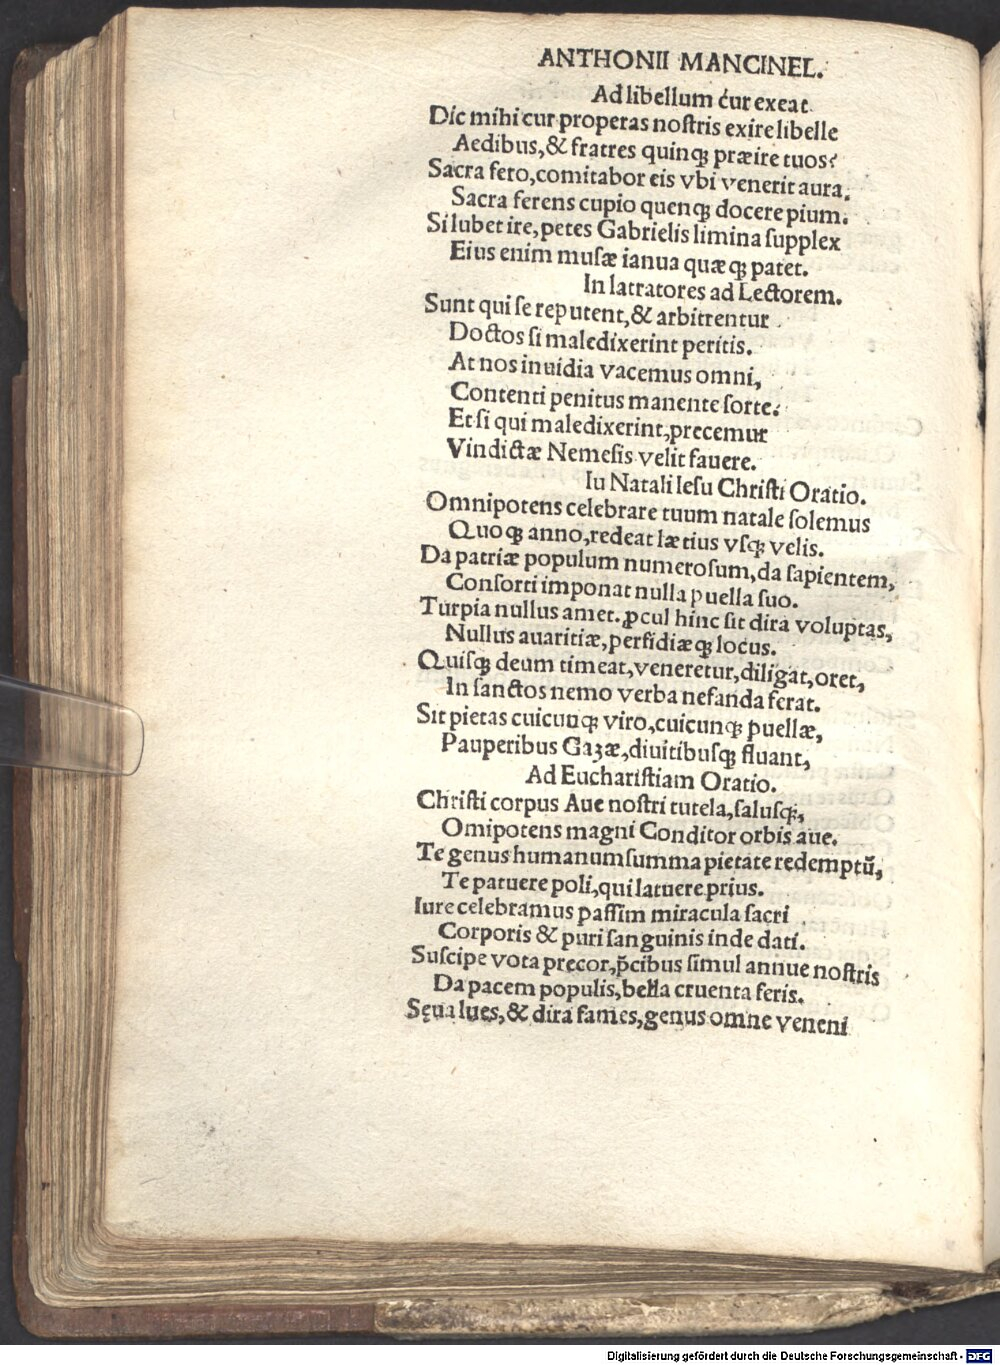 ANTHONII MANCINEL.
Ad libellum cur exeat
Dic mihi cur properas nostris exire libelle
Aedibus, & fratres quinqꝫ præire tuos?
Sacra fero, comitabor eis vbi venerit aura.
Sacra ferens cupio quenqꝫ docere pium.
Si lubet ire, petes Gabrielis limina supplex
Eius enim musæ ianua quæqꝫ patet.
In latratores ad Lectorem.
Sunt qui se reputent, & arbitrentur
Doctos si maledixerint peritis.
At nos inuidia vacemus omni,
Contenti penitus manente sorte.
Et si qui maledixerint, precemur
Vindictæ Nemesis velit fauere.
Iu Natali Iesu Christi Oratio.
Omnipotens celebrare tuum natale solemus
Quoqꝫ anno, redeat lætius vsqꝫ velis.
Da patriæ populum numerosum, da sapientem,
Consorti imponat nulla puella suo.
Turpia nullus amet. ꝓcul hinc sit dira voluptas,
Nullus auaritiæ, perfidiæqꝫ locus.
Quisqꝫ deum timeat, veneretur, diligat, oret,
In sanctos nemo verba nefanda ferat.
Sit pietas cuicunqꝫ viro, cuicunqꝫ puellæ,
Pauperibus Gazæ, diuitibusqꝫ fluant,
Ad Eucharistiam Oratio.
Christi corpus Aue nostri tutela, salusqꝫ,
Omipotens magni Conditor orbis aue.
Te genus humanum summa pietate redemptũ,
Te patuere poli, qui latuere prius.
Iure celebramus passim miracula sacri
Corporis & puri sanguinis inde dati.
Suscipe vota precor, p̃cibus simul annue nostris
Da pacem populis, bella cruenta feris.
Sęua lues, & dira fames, genus omne veneni
Digitalisierung gefördert durch die Deutsche Forschungsgemeinschaft - DFG